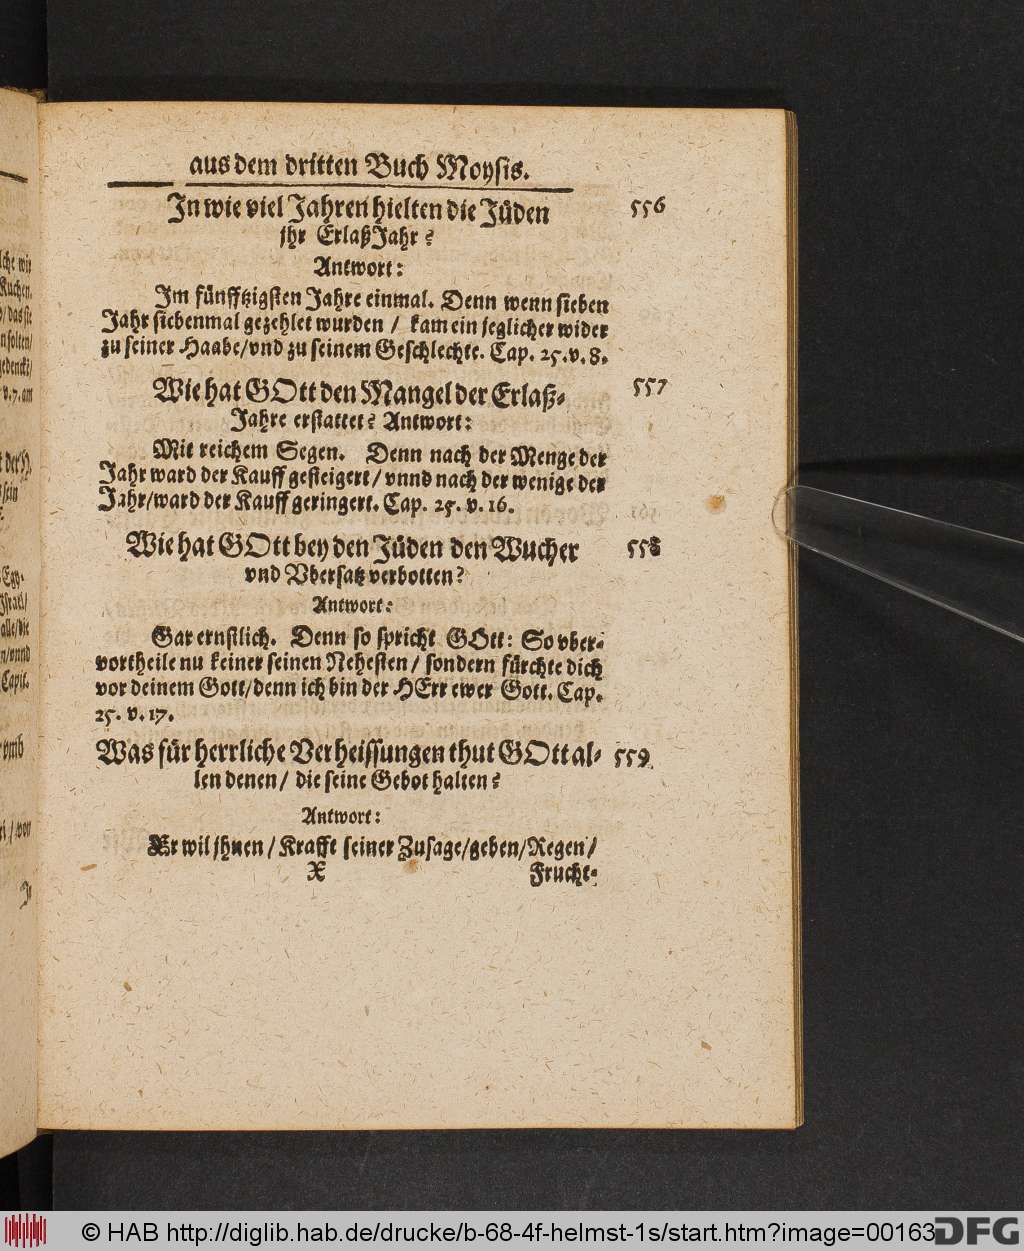 aus dem dritten Buch Moysis.
In wie viel Jahren hielten die Jüden 556
jhr ErlaßJahr?
Antwort:
Im fünfftzigsten Jahre einmal. Denn wenn sieben
Jahr siebenmal gezehlet wurden / kam ein jeglicher wider
zu seiner Haabe/vnd zu seinem Geschlechte. Cap. 25.v.8.
Wie hat GOtt den Mangel der Erlaß- 557
Jahre erstattet? Antwort:
Mit reichem Segen. Denn nach der Menge der
Jahr ward der Kauff gesteigert/vnnd nach der wenige der
Jahr/ward der Kauff geringert. Cap. 25. v. 16.
Wie hat GOtt bey den Jüden den Wucher 558
vnd Vbersatz verbotten?
Antwort:
Gar ernstlich. Denn so spricht GOtt: So vber-
vortheile nu keiner seinen Nehesten / sondern fürchte dich
vor deinem Gott/denn ich bin der HErr ewer Gott. Cap.
25. v. 17.
Was für herrliche Verheissungen thut GOtt al- 559
len denen/ die seine Gebot halten?
Antwort:
Er wil jhnen / Krafft seiner Zusage/geben/Regen/
X Frucht-
© HAB http://diglib.hab.de/drucke/b-68-4f-helmst-1s/start.htm?image=00163
DFG